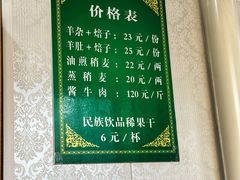 价格表
羊杂+焙子：23元/份
羊肚+焙子：25元/份
油煎稍麦：22元/两
蒸稍麦：20元/两
酱牛肉：120元/斤
民族饮品稀果干
6元/杯